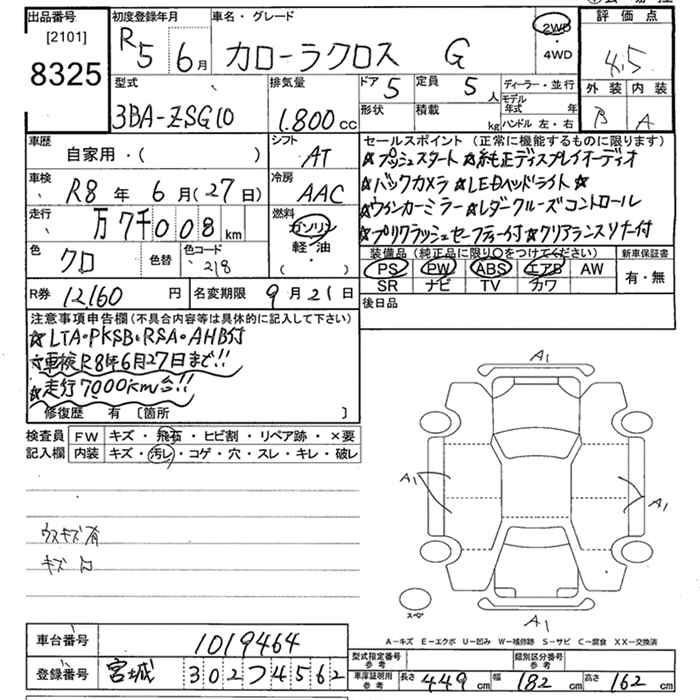 出品番号
[2101]
8325
初度登録年月
R5 6月
車名・グレード
カローラクロス G
2WD
・
4WD
評価点
4.5
外装 内装
B A
型式
3BA-ZSG10
排気量
1.800cc
ドア 5
定員 5人
形状
積載 kg
ディーラー・並行
モデル年式 年
ハンドル 左・右
車歴
自家用・( )
シフト
AT
車検
R8年6月(27日)
冷房
AAC
走行
万7千008km
燃料
ガソリン
軽・油
( )
色
クロ
色替
色コード
218
R券 12160円
名変期限 9月21日
セールスポイント(正常に機能するものに限ります)
☆プッシュスタート ☆純正ディスプレイオーディオ
☆バックカメラ ☆LEDヘッドライト ☆
☆ウィンカーミラー ☆レダークルーズコントロール
☆プリクラッシュセーフティー付 ☆クリアランスソナー付
装備品(純正品に限り○をつけてください)
PS PW ABS エアB AW
SR ナビ TV カワ
新車保証書
有・無
後日品
注意事項申告欄(不具合内容等は具体的に記入して下さい)
☆LTA・PKSB・RSA・AHB付
☆車検R8年6月27日まで!!
☆走行7000km台!!
修復歴 有 [箇所 ]
検査員記入欄
FW キズ・飛石・ヒビ割・リペア跡・×要
内装 キズ・汚レ・コゲ・穴・スレ・キレ・破レ
ウスキズ有
キズ
A1
A1
A1
A1
スペア
A-キズ E-エクボ U-凹み W-補修跡 S-サビ C-腐食 XX-交換済
車台番号 1019464
登録番号 宮城 302つ4562
型式指定番号
参考
類別区分番号
参考
車庫証明用
参考
長さ 449cm 幅 182cm 高さ 162cm